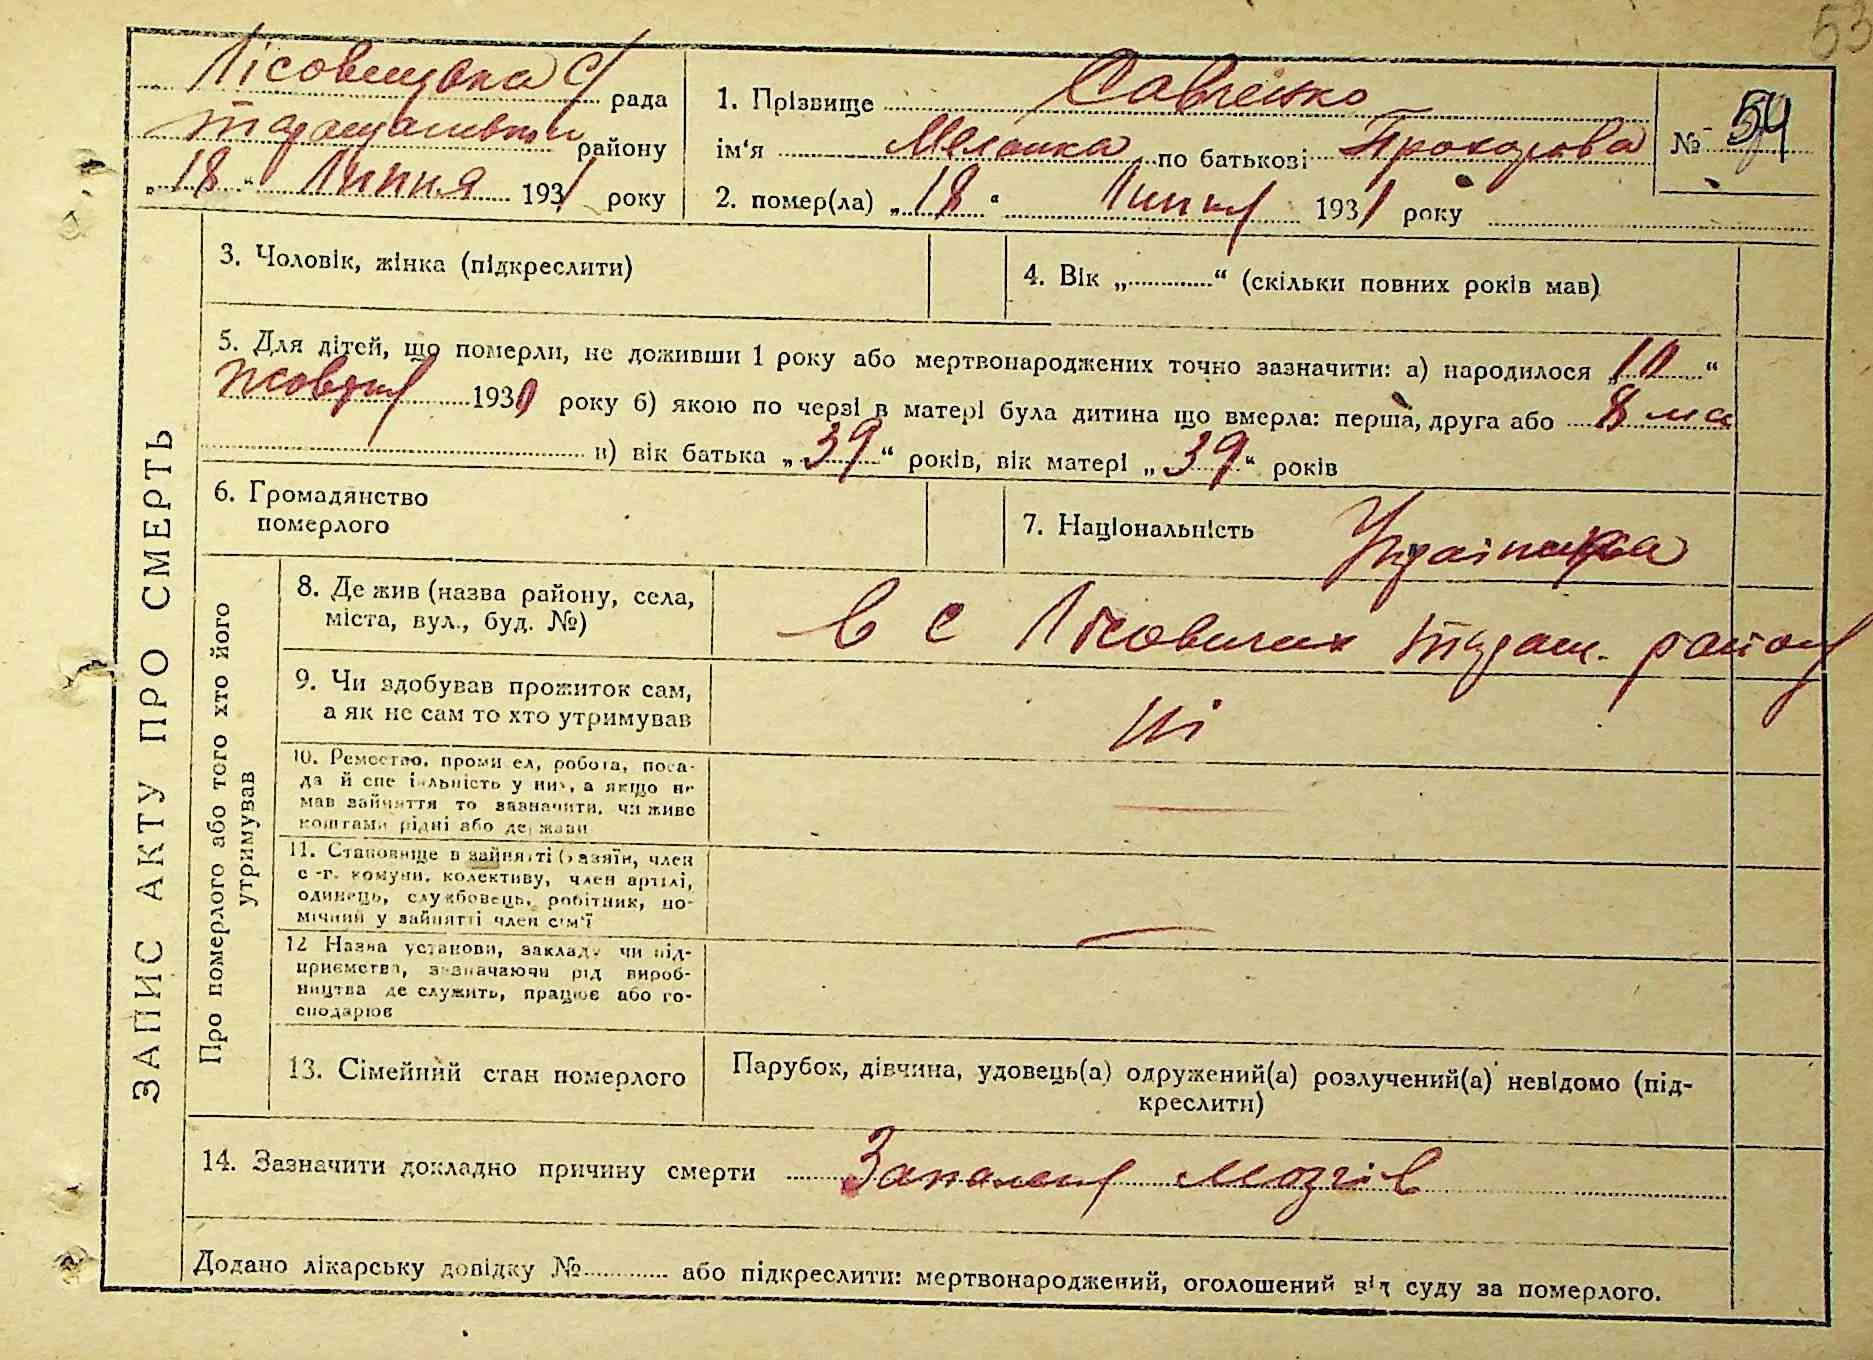 53
Лісовицька с/ рада
Таращанського району
„18“ Липня 1931 року
1. Прізвище Савченко
ім'я Меланка по батькові Прохорова
№ 54
2. помер(ла) „18“ Липня 1931 року
ЗАПИС АКТУ ПРО СМЕРТЬ
3. Чоловік, жінка (підкреслити)
4. Вік „............“ (скільки повних років мав)
5. Для дітей, що померли, не доживши 1 року або мертвонароджених точно зазначити: а) народилося „10“
жовтня 1930 року б) якою по черзі в матері була дитина що вмерла: перша, друга або 8 ма
в) вік батька „39“ років, вік матері „39“ років
6. Громадянство
померлого
7. Національність Українка
Про померлого або того хто його
утримував
8. Де жив (назва району, села,
міста, вул., буд. №)
в с Лісовичах Таращ. району
9. Чи здобував прожиток сам,
а як не сам то хто утримував
ні
10. Ремество, промисел, робота, поса-
да й спеціальність у них, а якщо не
мав зайняття то зазначити, чи живе
коштами рідні або держави
11. Становище в зайнятті (хазяїн, член
с.-г. комуни, колективу, член артілі,
одинець, службовець, робітник, по-
мічний у зайнятті член сім'ї
12 Назва установи, закладу чи під-
приємства, зазначаючи рід вироб-
ництва де служить, працює або го-
сподарює
13. Сімейний стан померлого
Парубок, дівчина, удовець(а) одружений(а) розлучений(а) невідомо (під-
креслити)
14. Зазначити докладно причину смерти Запаленя мозгів
Додано лікарську довідку №............ або підкреслити: мертвонароджений, оголошений від суду за померлого.